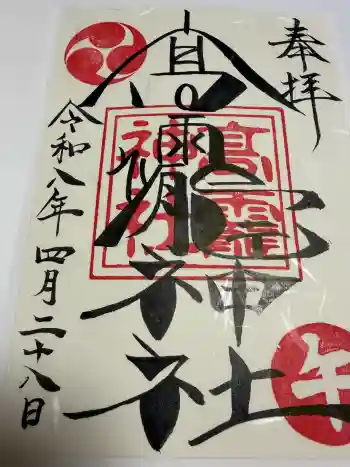 奉拝
高龗神社
高龗
神社
令和八年四月二十八日
午